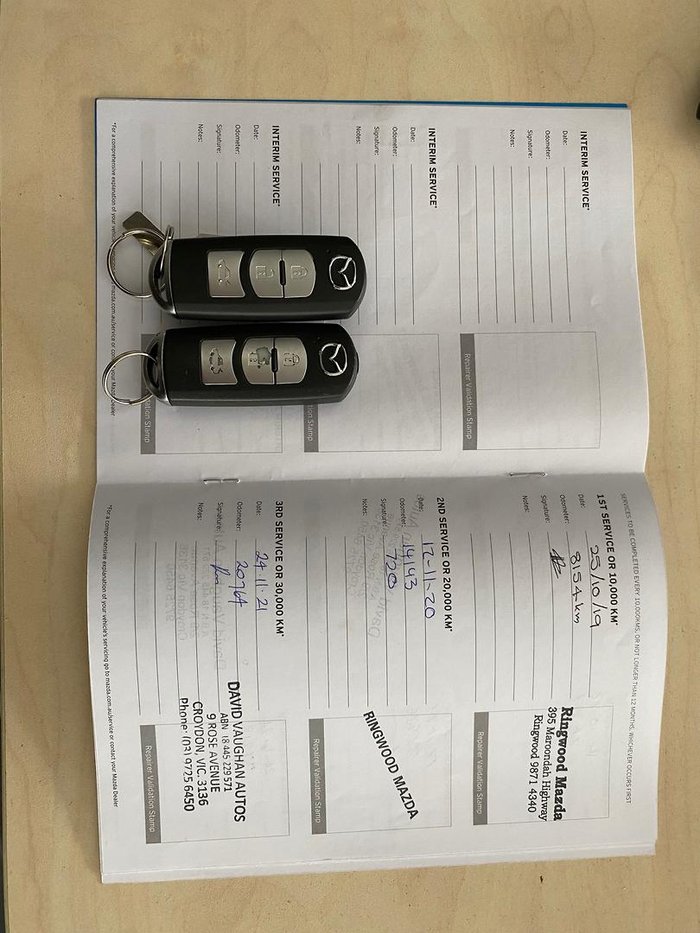 SERVICES TO BE COMPLETED EVERY 10,000KMS, OR NOT LONGER THAN 12 MONTHS, WHICHEVER OCCURS FIRST
INTERIM SERVICE*
Date:
Odometer:
Signature:
Notes:
Repairer Validation Stamp
INTERIM SERVICE*
Date:
Odometer:
Signature:
Notes:
Stamp
INTERIM SERVICE*
Date:
Odometer:
Signature:
Notes:
Stamp
*For a comprehensive explanation of your vehicle's
mazda.com.au/service or contact your Mazda Dealer
1ST SERVICE OR 10,000 KM*
Date: 25/10/19
Odometer: 8154km
Signature:
Notes:
Ringwood Mazda
395 Maroondah Highway
Ringwood 9871 4340
Repairer Validation Stamp
2ND SERVICE OR 20,000 KM*
Date: 17-11-20
Odometer: 14143
Signature: 728
Notes:
RINGWOOD MAZDA
Repairer Validation Stamp
3RD SERVICE OR 30,000 KM*
Date: 24.11.21
Odometer: 20764
Signature:
Notes:
DAVID VAUGHAN AUTOS
ABN 18 445 229 571
9 ROSE AVENUE
CROYDON, VIC. 3136
Phone: (03) 9725 6450
Repairer Validation Stamp
*For a comprehensive explanation of your vehicle's servicing go to mazda.com.au/service or contact your Mazda Dealer